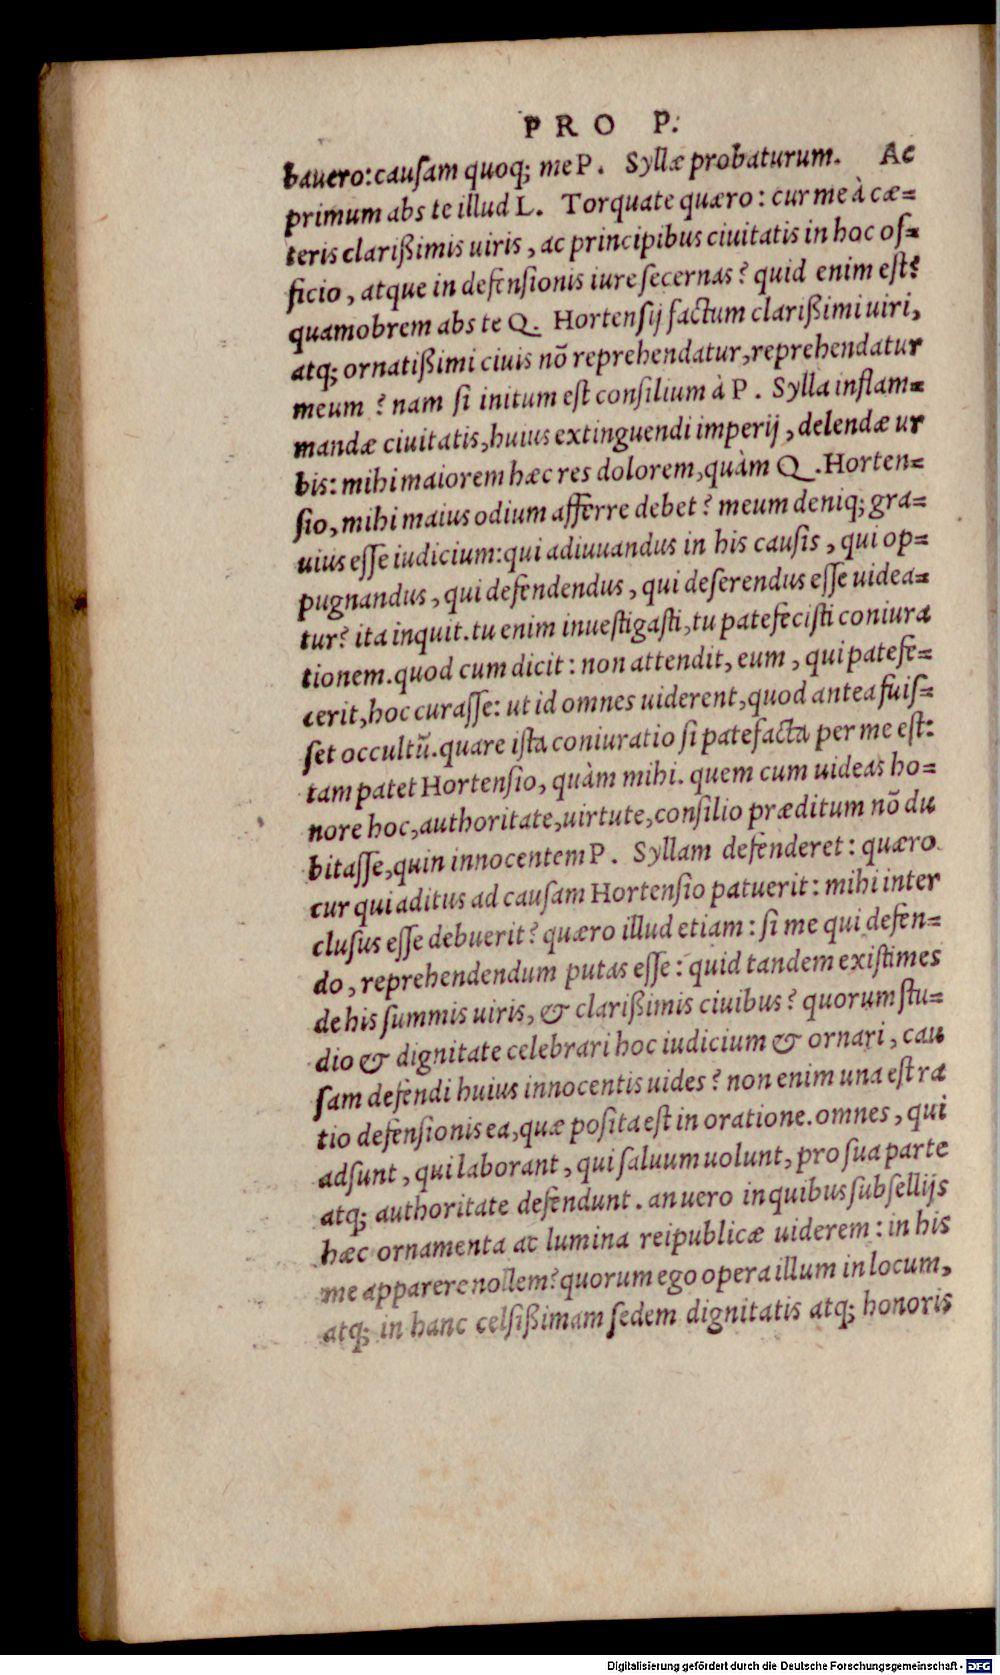 PRO P.
bauero: causam quoq; me P. Syllæ probaturum. Ac
primum abs te illud L. Torquate quæro: cur me à cæ=
teris clarißimis uiris, ac principibus ciuitatis in hoc of=
ficio, atque in defensionis iure secernas? quid enim est?
quamobrem abs te Q. Hortensij factum clarißimi uiri,
atq; ornatißimi ciuis nõ reprehendatur, reprehendatur
meum? nam si initum est consilium à P. Sylla inflam=
mandæ ciuitatis, huius extinguendi imperij, delendæ ur
bis: mihi maiorem hæc res dolorem, quàm Q. Horten=
sio, mihi maius odium afferre debet? meum deniq; gra=
uius esse iudicium: qui adiuuandus in his causis, qui op=
pugnandus, qui defendendus, qui deserendus esse uidea=
tur? ita inquit. tu enim inuestigasti, tu patefecisti coniura
tionem. quod cum dicit: non attendit, eum, qui patefe=
cerit, hoc curasse: ut id omnes uiderent, quod antea fuis=
set occultũ. quare ista coniuratio si patefacta per me est:
tam patet Hortensio, quàm mihi. quem cum uideas ho=
nore hoc, authoritate, uirtute, consilio præditum nõ du
bitasse, quin innocentem P. Syllam defenderet: quæro
cur qui aditus ad causam Hortensio patuerit: mihi inter
clusus esse debuerit? quæro illud etiam: si me qui defen=
do, reprehendendum putas esse: quid tandem existimes
de his summis uiris, & clarißimis ciuibus? quorum stu=
dio & dignitate celebrari hoc iudicium & ornari, cau
sam defendi huius innocentis uides? non enim una est ra
tio defensionis ea, quæ posita est in oratione. omnes, qui
adsunt, qui laborant, qui saluum uolunt, pro sua parte
atq; authoritate defendunt. an uero in quibus subsellijs
hæc ornamenta ac lumina reipublicæ uiderem: in his
me apparere nollem? quorum ego opera illum in locum,
atq; in hanc celsißimam sedem dignitatis atq; honoris
Digitalisierung gefördert durch die Deutsche Forschungsgemeinschaft - DFG